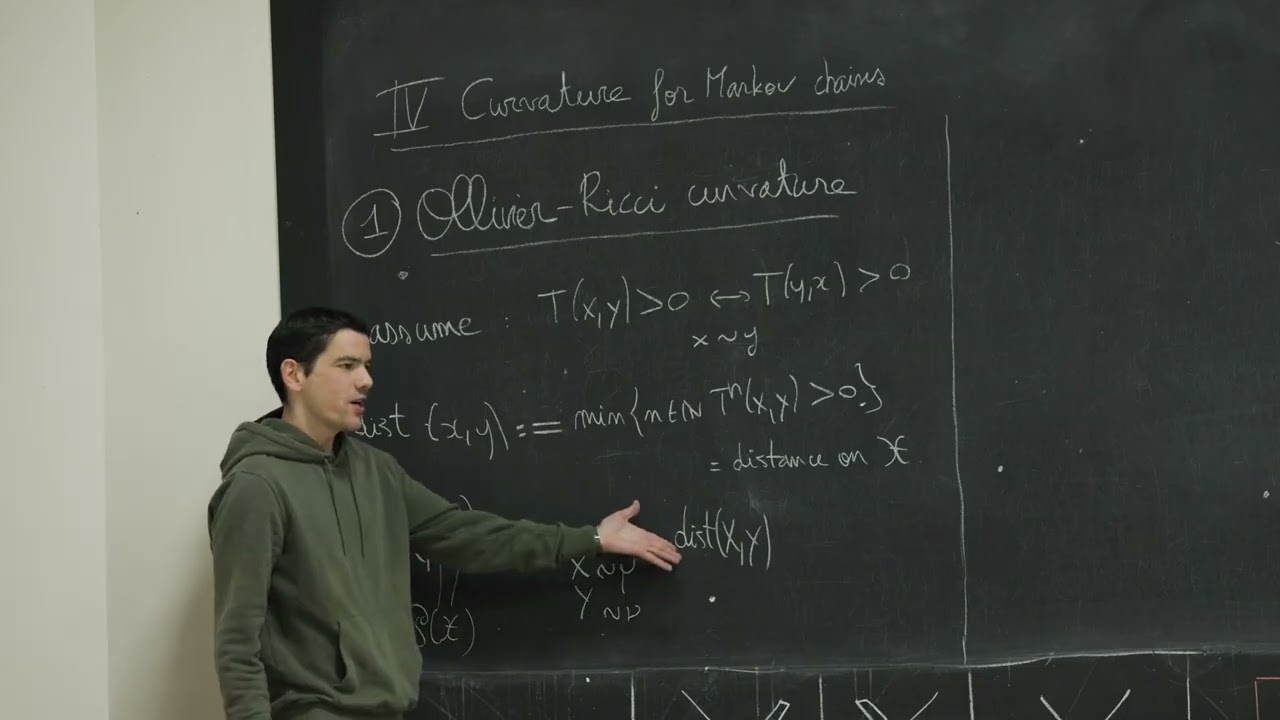 IV Curvature for Markov chains
① Ollivier-Ricci curvature
assume : T(x,y)>0 ↔ T(y,x)>0
x~y
dist (x,y) := min{n∈ℕ Tⁿ(x,y)>0}
= distance on 𝒳
dist(X,Y)
X ~ μ
Y ~ ν
𝒫(𝒳)